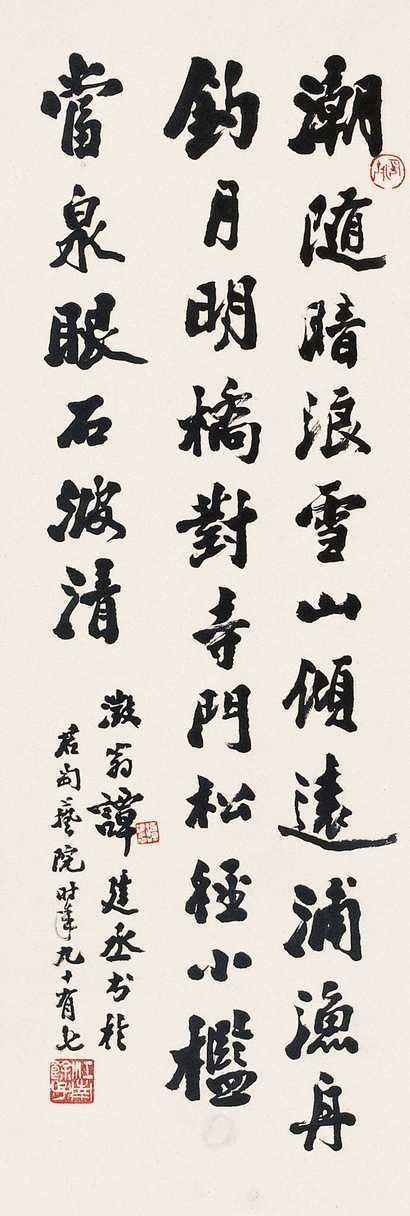 潮随暗浪雪山傾遠浦漁舟
釣月明橋對寺門松徑小檻
當泉眼石波清
澂翁譚建丞书於
君匋藝院时年九十有七